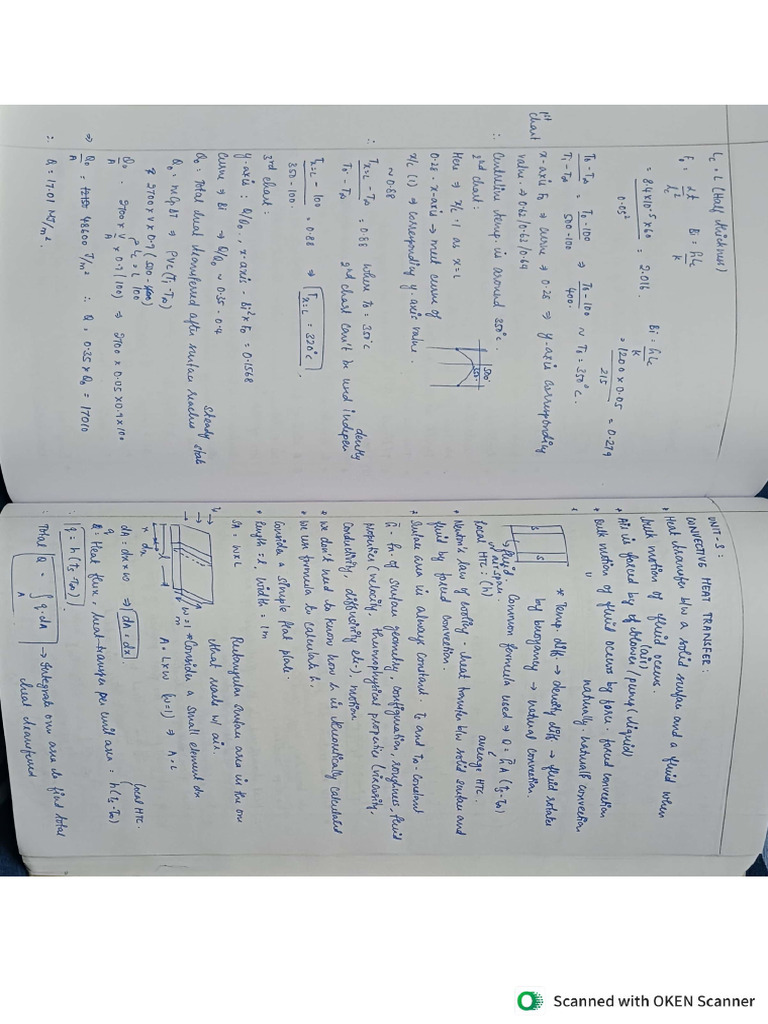 Lc = L (Half thickness)
Fo = αt / Lc² Bi = hLc / k
= 8.4 × 10⁻⁵ × 60 / 0.05² = 2.016. Bi = hLc / k
= 1200 × 0.05 / 215 = 0.279
1st chart
T0 - T∞ / Ti - T∞ = T0 - 100 / 500 - 100 ⇒ T0 - 100 / 400 ~ T0 = 350°C.
x-axis Fo ⇒ curve ⇒ 0.28 ⇒ y-axis corresponding
value ⇒ 0.62/0.63/0.64
∴ Centerline temp. is around 350°C.
2nd chart:
Here ⇒ x/L = 1 as x = L
0.28 = x-axis → meet curve of
x/L (1) ⇒ corresponding y-axis value.
~ 0.88
500°
350°
∴ Tx=L - T∞ / T0 - T∞ = 0.88 when T0 = 350°C
2nd chart can't be used indepen
dently
Tx=L - 100 / 350 - 100 = 0.88 ⇒ Tx=L = 320°C
3rd chart:
y-axis: Q/Q0, x-axis = Bi² × Fo = 0.1568
Curve ⇒ Bi ⇒ Q/Q0 ~ 0.35 - 0.4
Q0 = Total heat transferred after surface reaches
steady state
Q0 = mCpΔT ⇒ ρVc(Ti - T∞)
Q0 / A = 2700 × V / A × 0.9 (100) ⇒ 2700 × 0.05 × 0.9 × 100
⇒ Q0 / A = 48600 J/m² ∴ Q = 0.35 × Q0 = 17010
∴ Q = 17.01 MJ/m².
UNIT-3:
CONVECTIVE HEAT TRANSFER:
• Heat transfer b/w a solid surface and a fluid when
bulk motion of fluid occurs.
(air)
• Air is forced by of blower/pump (liquid)
• Bulk motion of fluid occurs by force - forced convection
" naturally - natural convection
* Temp. diff. → density diff → fluid rotates
by buoyancy → natural convection.
S
S
fluid
in air span.
Common formula used ⇒ Q = h̄A (Ts - T∞)
Local HTC: (h)
average HTC.
• Newton's law of cooling - heat transfer b/w solid surface and
fluid by forced convection.
* Surface area is always constant. Ts and T∞ - constant
h̄ = fn of surface geometry, configuration, roughness, fluid
properties (velocity, thermophysical properties (viscosity,
conductivity, diffusivity etc.), motion
• We don't need to know how h is theoretically calculated
• We use formula to calculate h.
Consider a simple flat plate.
• Length = L, width = 1m
SA = W × L
Rectangular surface area is the one
that reacts w/ air.
W = 1
• Consider a small element dx
A = L × W (W = 1) ⇒ A = L
x dx
dA = dx × W ⇒ dA = dx
(local HTC.
q = Heat flux, heat-transfer per unit area = h(Ts - T∞)
∴ q = h(Ts - T∞)
∴ Total Q = ∫ q·dA → Integrate over area to find total
A
heat transferred
Scanned with OKEN Scanner